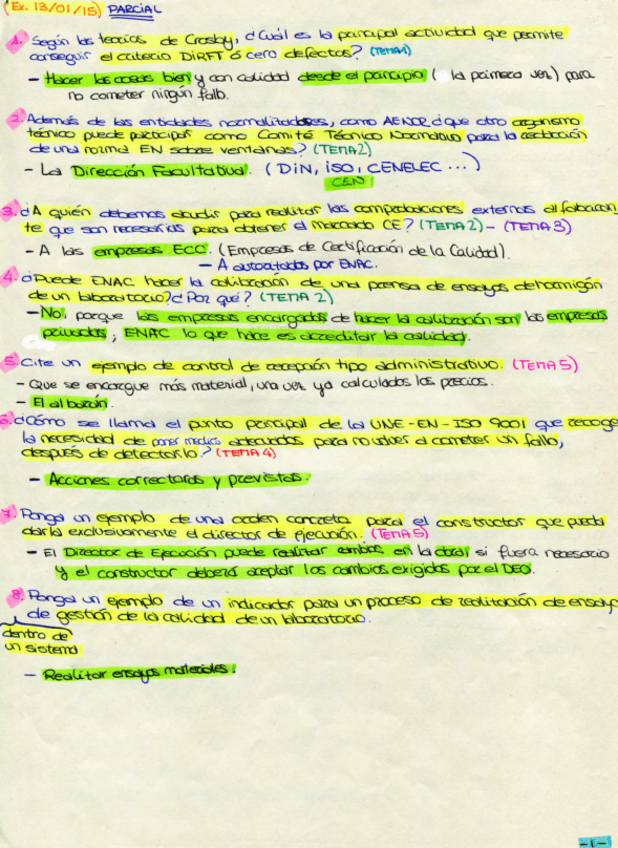 (Ex. 13/01/15) PARCIAL
1. Según las teorías de Crosby, ¿Cuál es la principal actividad que permite
conseguir el criterio DIRFT ó cero defectos? (TEMA1)
- Hacer las cosas bien y con calidad desde el principio ( la primera vez) para
no cometer ningún fallo.
2. Además de las entidades normalizadoras, como AENOR ¿que otro organismo
técnico puede participar como Comité Técnico Normativo para la redacción
de una norma EN sobre ventanas? (TEMA2)
- La Dirección Facultativa. (DIN, ISO, CENELEC ...)
CEN
3. ¿A quién debemos acudir para realitar las comprobaciones externas al fabrican
te que son necesarias para obtener el marcado CE? (TEMA 2) - (TEMA 3)
- A las empresas ECC. (Empresas de Certificación de la Calidad).
- A autorizadas por ENAC.
4. ¿Puede ENAC hacer la calibración de una prensa de ensayos de hormigón
de un laboratorio? ¿Por qué? (TEMA 2)
- No, porque las empresas encargadas de hacer la calibración son las empresas
privadas; ENAC lo que hace es acreditar la calidad.
5. Cite un ejemplo de control de recepción tipo administrativo. (TEMA 5)
- Que se encargue más material, una vez ya calculados los precios.
- El albarán.
6. ¿Cómo se llama el punto principal de la UNE-EN-ISO 9001 que recoge
la necesidad de poner medios adecuados para no volver a cometer un fallo,
después de detectarlo? (TEMA 4)
- Acciones correctoras y previstas.
7. Ponga un ejemplo de una orden concreta para el constructor que pueda
darla exclusivamente el director de ejecución. (TEMA 5)
- El Director de Ejecución puede realitar cambios en la obra, si fuera necesario
y el constructor deberá aceptar los cambios exigidos por el DEO.
8. Ponga un ejemplo de un indicador para un proceso de realitación de ensayos
de gestión de la calidad de un laboratorio.
dentro de
un sistema
- Realitar ensayos materiales.
-1-